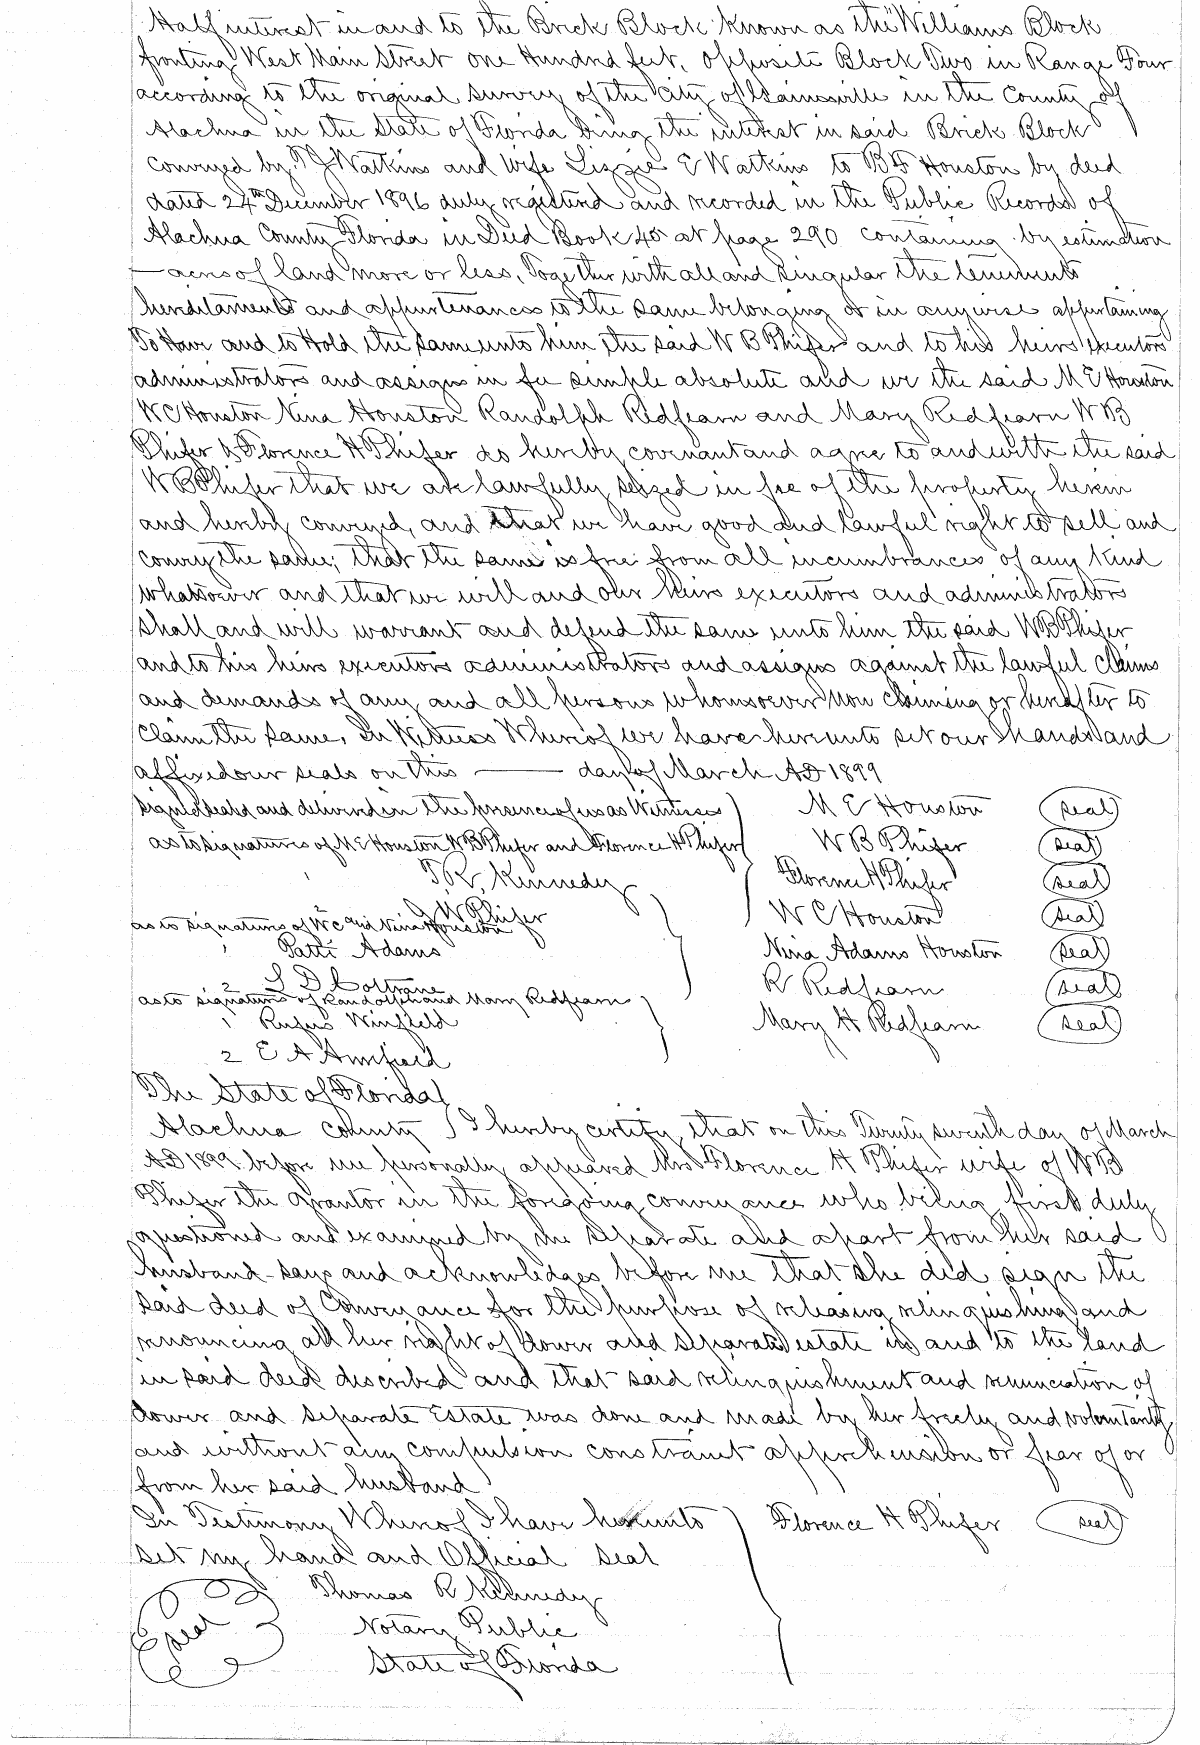 Half interest in and to the Brick Block Known as the "Williams Block
fronting West Main Street one Hundred feet, opposite Block Two in Range Four
according to the original survey of the City of Gainesville in the County of
Alachua in the State of Florida being the interest in said Brick Block
conveyed by T J Watkins and wife Lizzie E Watkins to B F Houston by deed
dated 24th December 1896 duly registered and recorded in the Public Records of
Alachua County Florida in Deed Book 45 at page 290 containing by estimation
— acres of land more or less, Together with all and singular the tenements
hereditaments and appurtenances to the same belonging or in anywise appertaining
To Have and to Hold the same unto him the said W B Phifer and to his heirs executors
administrators and assigns in fee simple absolute and we the said M E Houston
W C Houston Nina Houston Randolph Redfearn and Mary Redfearn W B
Phifer & Florence H Phifer do hereby covenant and agree to and with the said
W B Phifer that we are lawfully seized in fee of the property herein
and hereby conveyed, and that we have good and lawful right to sell and
convey the same; that the same is free from all incumbrances of any Kind
whatsoever and that we will and our heirs executors and administrators
shall and will warrant and defend the same unto him the said W B Phifer
and to his heirs executors administrators and assigns against the lawful claims
and demands of any and all persons whomsoever now claiming or hereafter to
claim the same. In Witness Whereof we have hereunto set our hands and
affixed our seals on this —— day of March AD 1899
signed sealed and delivered in the presence of us as Witnesses M E Houston seal
as to signatures of M E Houston W B Phifer and Florence H Phifer W B Phifer seal
T R Kennedy Florence H Phifer seal
J W Phifer
as to signatures of W C and Nina Houston W C Houston seal
1 Patti Adams Nina Adams Houston seal
2 L D Coltrane R Redfearn seal
as to signatures of Randolph and Mary Redfearn
1 Rufus Winfield Mary H Redfearn seal
2 E A Armfield
The State of Florida
Alachua County I hereby certify that on this Twenty seventh day of March
AD 1899 before me personally appeared Mrs Florence H Phifer wife of W B
Phifer the grantor in the foregoing conveyance who being first duly
questioned and examined by me separate and apart from her said
husband says and acknowledges before me that she did sign the
said deed of Conveyance for the purpose of releasing relinquishing and
renouncing all her right of dower and separate estate in and to the land
in said deed described and that said relinquishment and renunciation of
dower and separate Estate was done and made by her freely and voluntarily
and without any compulsion constraint apprehension or fear of or
from her said husband
In Testimony Whereof I have hereunto Florence H Phifer seal
set my hand and Official seal
Thomas R Kennedy
seal Notary Public
State of Florida